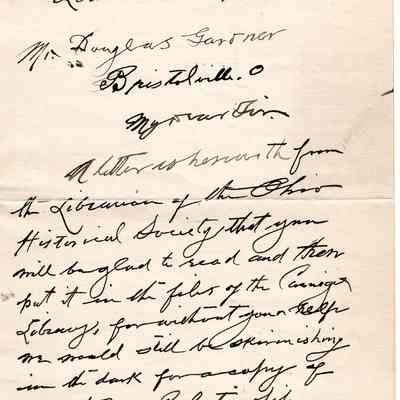 Mr. Douglas Gardner
Bristolville. O
My Dear Sir.
A letter is herewith from
the Librarian of the Ohio
Historical Society that you
will be glad to read and then
put it in the files of the Carnegie
Library, for without your help
we would still be skirmishing
in the dark for a copy of